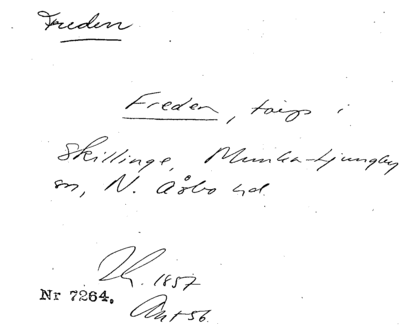 Freden
Freden, torp i
Skillinge, Munka-Ljungby
sn, N. Åsbo hd.
1857
Nr 7264.